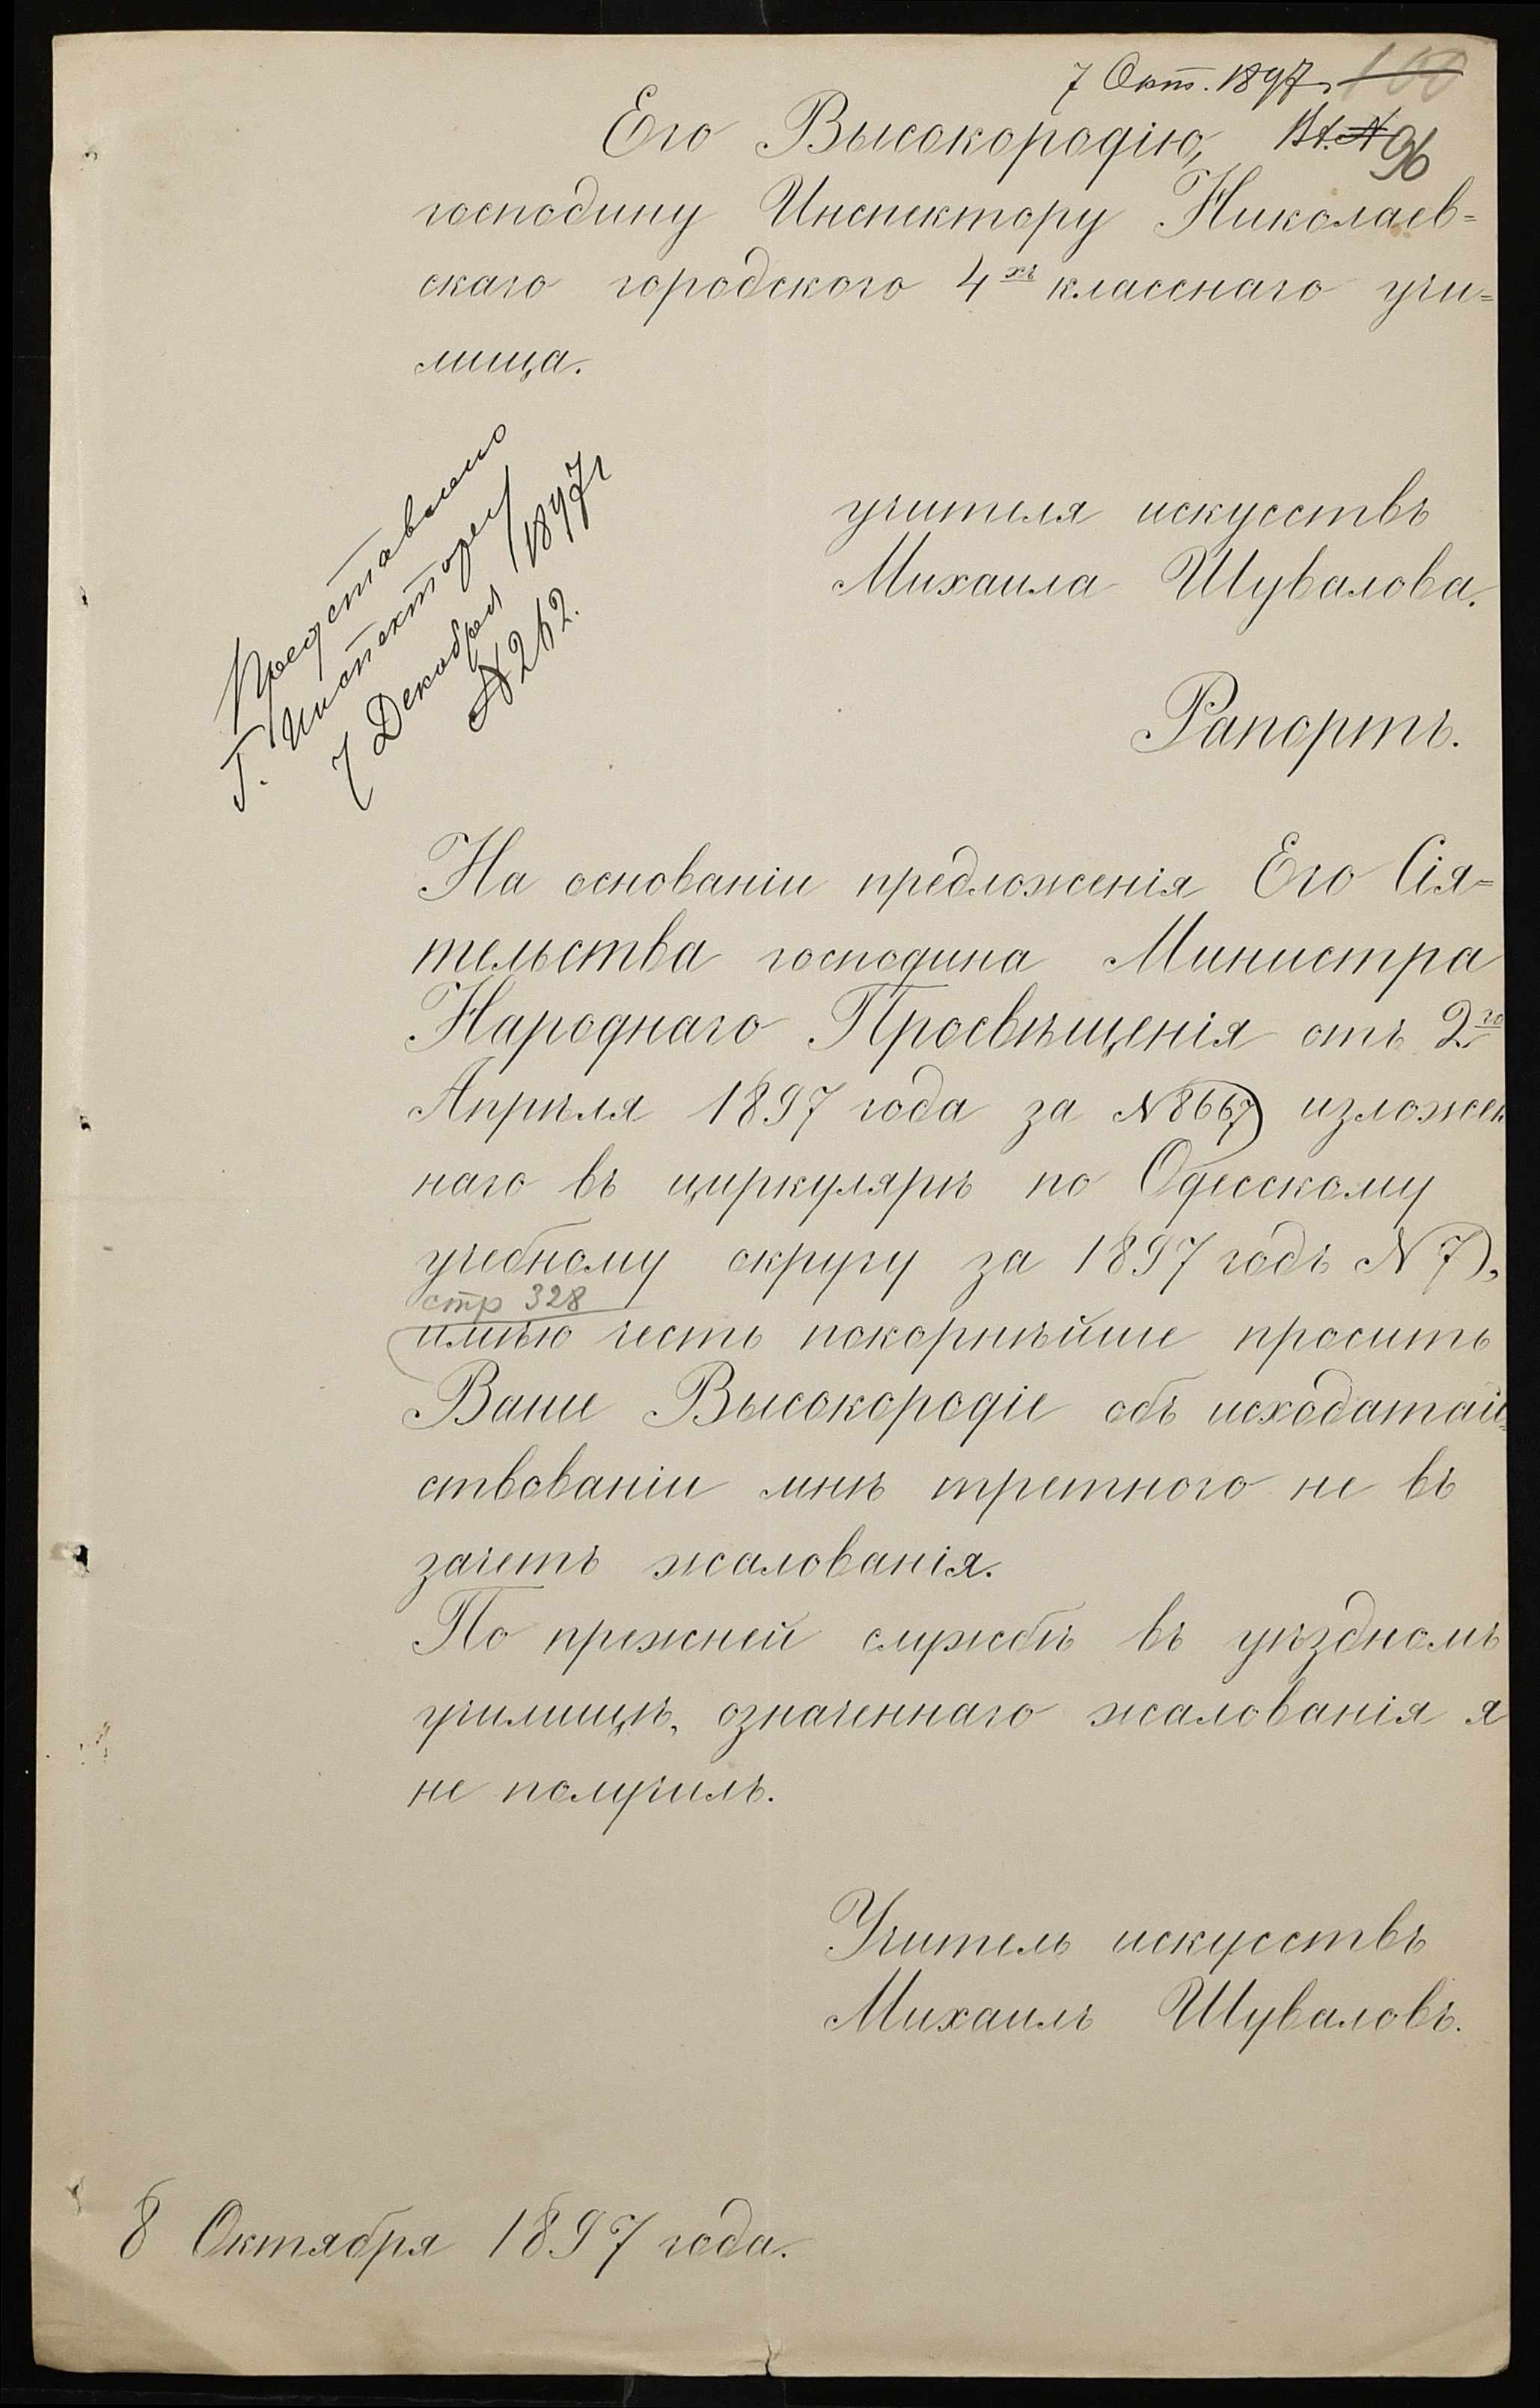 7 Окт. 1897 г. 100
Его Высокородію, Вх. № 96
господину Инспектору Николаев=
скаго городского 4хъ класснаго учи=
лища.
Представлено
Г. Инспектором
7 Декабря 1897 г
№ 262.
учителя искусствъ
Михаила Шувалова.
Рапортъ.
На основаніи предложенія Его Сія=
тельства господина Министра
Народнаго Просвѣщенія отъ 2го
Апрѣля 1897 года за №8667) изложен
наго въ циркулярѣ по Одесскому
учебному округу за 1897 годъ № 7),
стр 328
имѣю честь покорнѣйше просить
Ваше Высокородіе объ исходатай=
ствованіи мнѣ третного не въ
зачетъ жалованія.
По прежней службѣ въ уѣздномъ
училищѣ, означеннаго жалованія я
не получилъ.
Учитель искусствъ
Михаилъ Шуваловъ.
8 Октября 1897 года.